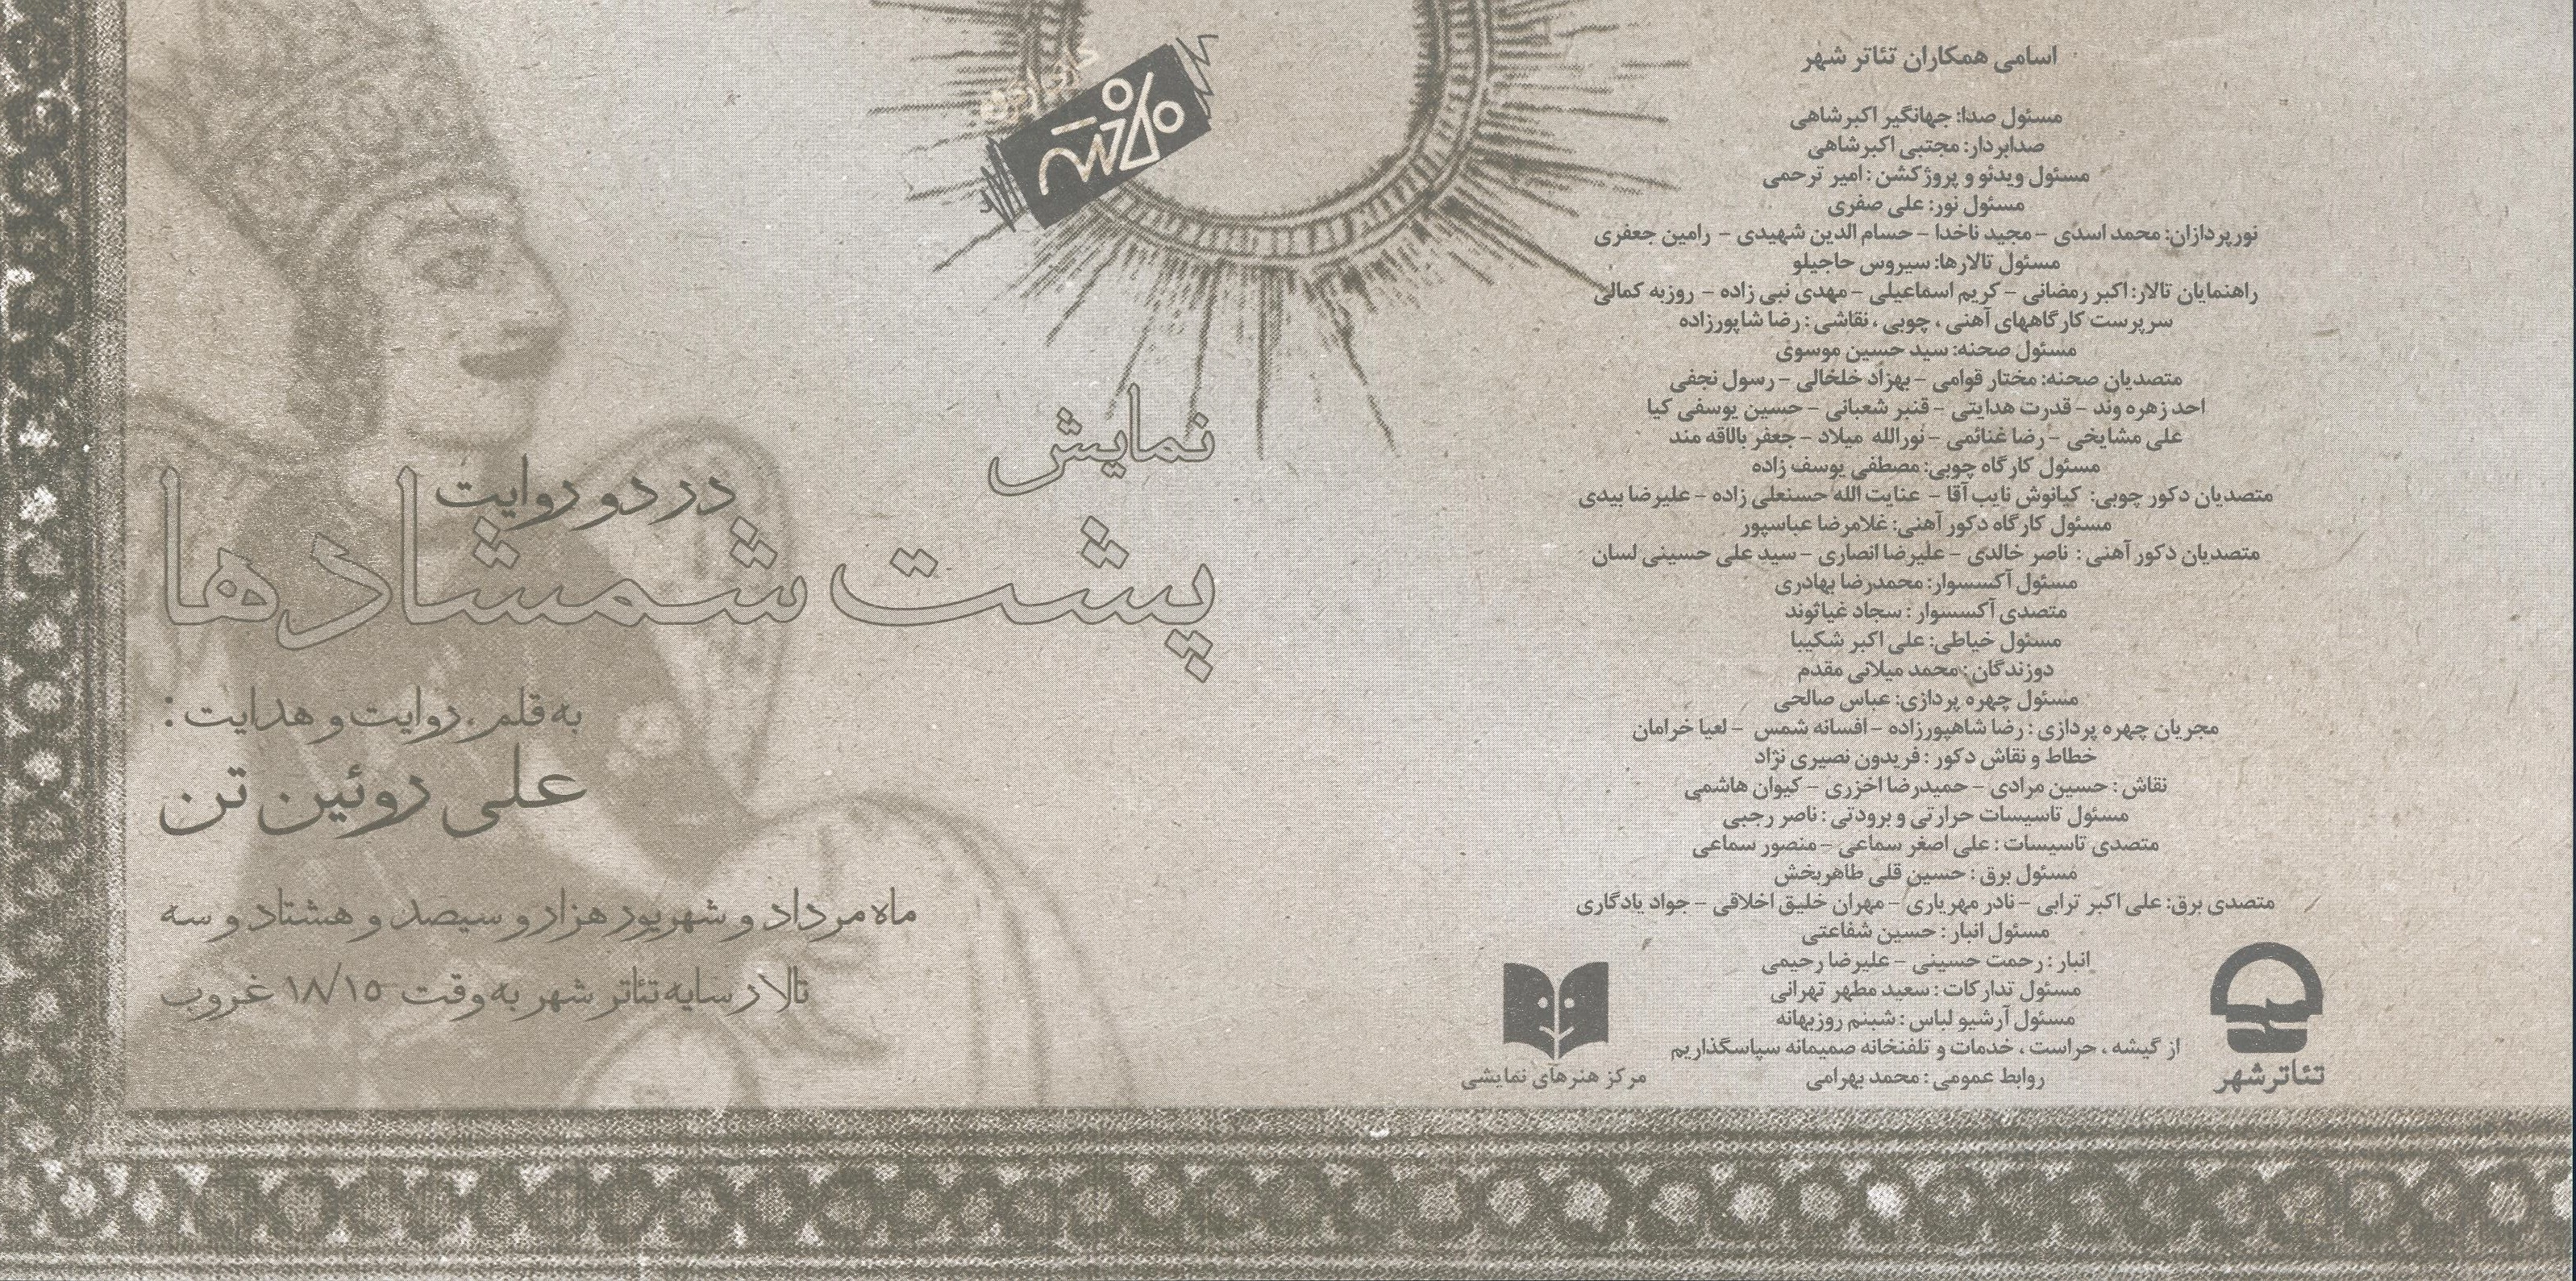 اسامی همکاران تئاتر شهر
مسئول صدا: جهانگیر اکبرشاهی
صدابردار: مجتبی اکبرشاهی
مسئول ویدئو و پروژکشن: امیر ترحمی
مسئول نور: علی صفری
نورپردازان: محمد اسدی – مجید ناخدا – حسام الدین شهیدی – رامین جعفری
مسئول تالارها: سیروس حاجیلو
راهنمایان تالار: اکبر رمضانی – کریم اسماعیلی – مهدی نبی زاده – روزبه کمالی
سرپرست کارگاههای آهنی ، چوبی ، نقاشی : رضا شاپورزاده
مسئول صحنه: سید حسین موسوی
متصدیان صحنه: مختار قوامی – بهزاد خلخالی – رسول نجفی
احد زهره وند – قدرت هدایتی – قنبر شعبانی – حسین یوسفی کیا
علی مشایخی – رضا غنائمی – نورالله میلاد – جعفر بالاقه مند
مسئول کارگاه چوبی: مصطفی یوسف زاده
متصدیان دکور چوبی: کیانوش نایب آقا – عنایت الله حسنعلی زاده – علیرضا بیدی
مسئول کارگاه دکور آهنی: غلامرضا عباسپور
متصدیان دکور آهنی : ناصر خالدی – علیرضا انصاری – سید علی حسینی لسان
مسئول آکسسوار: محمدرضا بهادری
متصدی آکسسوار : سجاد غیاثوند
مسئول خیاطی: علی اکبر شکیبا
دوزندگان : محمد میلانی مقدم
مسئول چهره پردازی: عباس صالحی
مجریان چهره پردازی : رضا شاهپورزاده – افسانه شمس – لعیا خرامان
خطاط و نقاش دکور : فریدون نصیری نژاد
نقاش : حسین مرادی – حمیدرضا اخزری – کیوان هاشمی
مسئول تاسیسات حرارتی و برودتی : ناصر رجبی
متصدی تاسیسات : علی اصغر سماعی – منصور سماعی
مسئول برق : حسین قلی طاهربخش
متصدی برق: علی اکبر ترابی – نادر مهریاری – مهران خلیق اخلاقی – جواد یادگاری
مسئول انبار : حسین شفاعتی
انبار : رحمت حسینی – علیرضا رحیمی
مسئول تدارکات : سعید مطهر تهرانی
مسئول آرشیو لباس : شبنم روزبهانه
از گیشه ، حراست ، خدمات و تلفنخانه صمیمانه سپاسگذاریم
روابط عمومی : محمد بهرامی
تئاترشهر
مرکز هنرهای نمایشی
نمایش
پشت شمشادها
در دو روایت
به قلم . روایت و هدایت :
علی روئین تن
ماه مرداد و شهریور هزار و سیصد و هشتاد و سه
تالار سایه تئاتر شهر به وقت ۱۸/۱۵ غروب